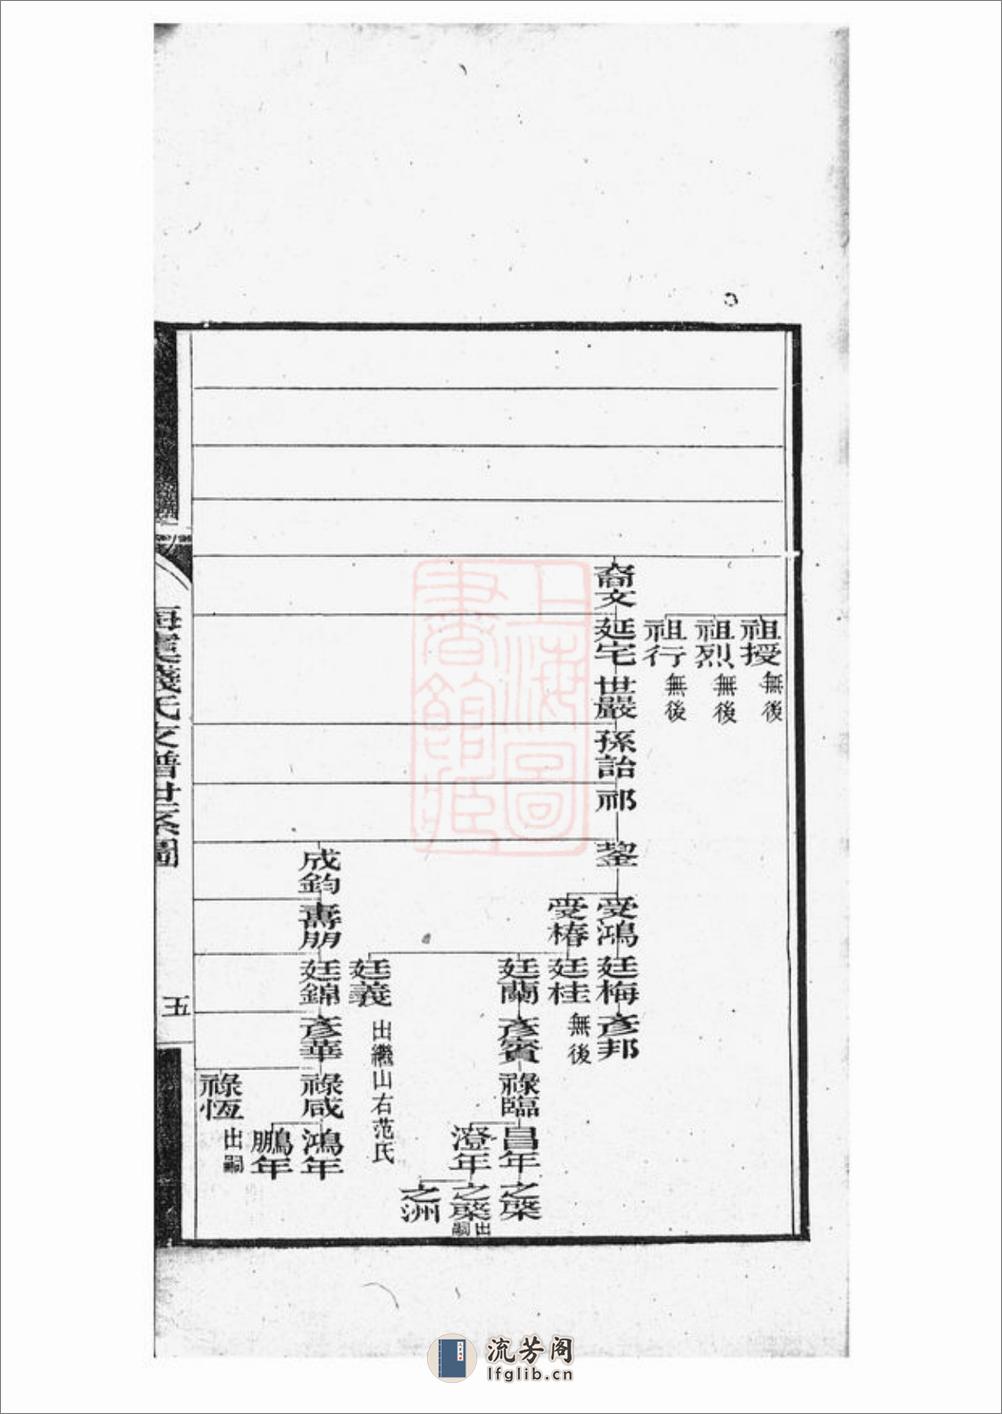 祖授 無後
祖烈 無後
祖行 無後
裔文
延宅
世嚴
孫詒
祁
鋆
受鴻
廷梅
彥邦
受椿
廷桂 無後
廷蘭
彥賓
祿臨
昌年
之棨
澄年
之棨 出嗣
之洲
廷義 出繼山右范氏
成鈞
壽朋
廷錦
彥華
祿咸
鴻年
鵬年
祿恆 出嗣
海虞錢氏支譜世系圖
五
上海圖書館藏
流芳阁
lfglib.cn